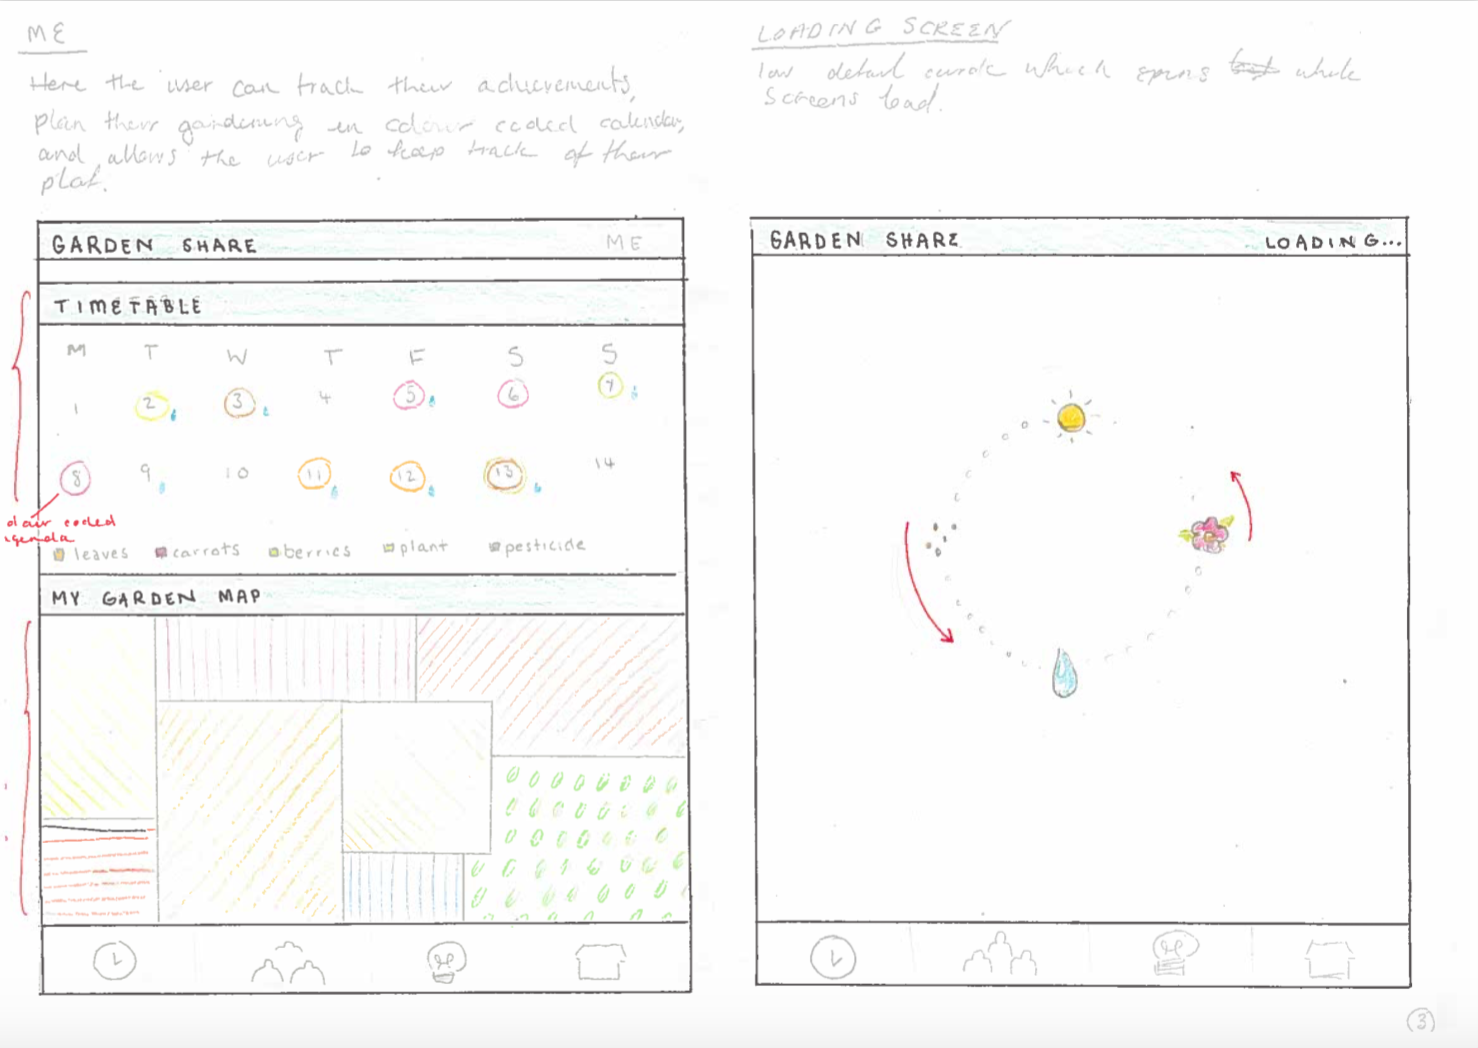 ME
Here the user can track their achievements,
plan their gardening in colour coded calendar,
and allows the user to keep track of their
plot.
GARDEN SHARE ME
TIMETABLE
M T W T F S S
1 2 3 4 5 6 7
8 9 10 11 12 13 14
coded
leaves carrots berries plant pesticide
MY GARDEN MAP
LOADING SCREEN
low detail which spins while
screens load.
GARDEN SHARE LOADING...
3